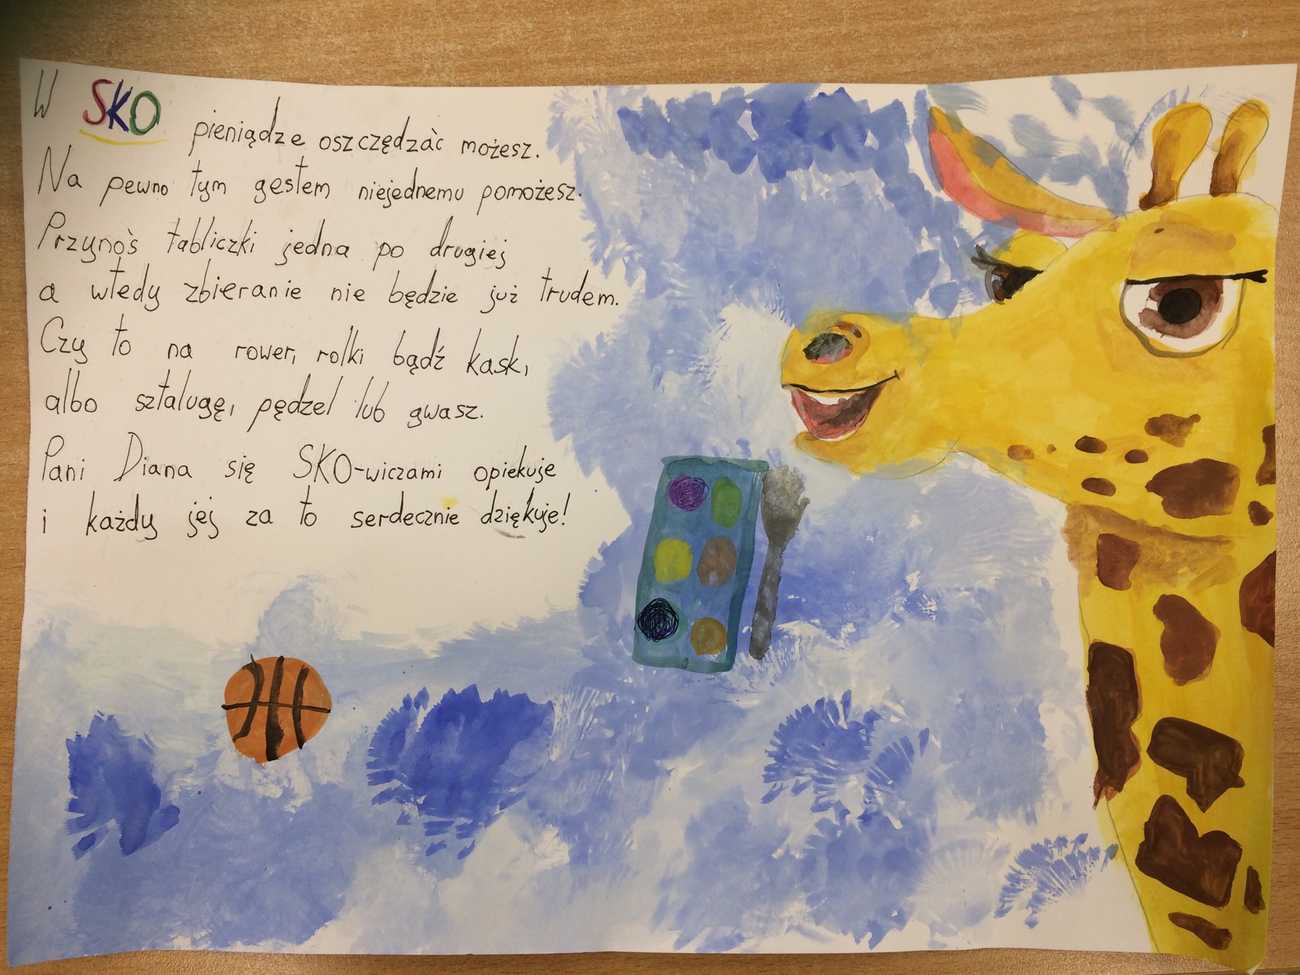 W SKO pieniądze oszczędzać możesz.
Na pewno tym gestem niejednemu pomożesz.
Przynoś tabliczki jedna po drugiej
a wtedy zbieranie nie będzie już trudem.
Czy to na rower, rolki bądź kask,
albo sztalugę, pędzel lub gwasz.
Pani Diana się SKO-wiczami opiekuje
i każdy jej za to serdecznie dziękuje!